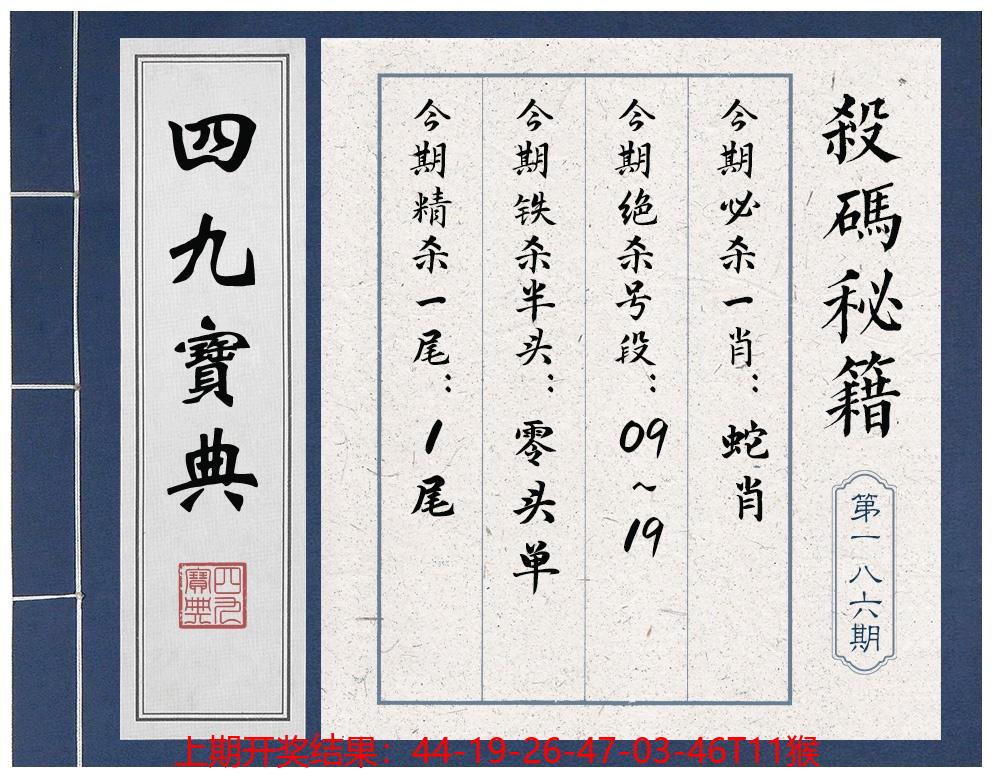 殺碼秘籍
第一八六期
今期必杀一肖：蛇肖
今期绝杀号段：09~19
今期铁杀半头：零头单
今期精杀一尾：1尾
四九寶典
四九
寶典
上期开奖结果：44-19-26-47-03-46T11猴